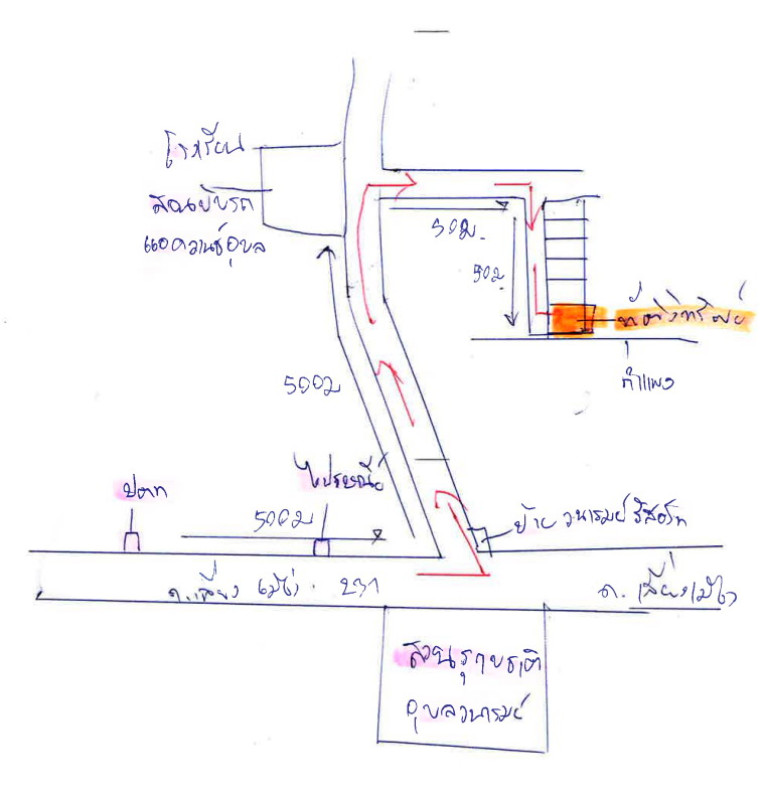 โรงเรียน
สอนขับรถ
แอดวานซ์อุบล
50ม.
50ม.
ที่ตั้งทรัพย์
กำแพง
500ม
ปตท
ไปรษณีย์
500ม
ป้าย วนารมย์ รีสอร์ท
ถ.เลี่ยงเมือง . 231
ถ. เลี่ยงเมือง
สวนรุกขชาติ
อุบลวนารมย์